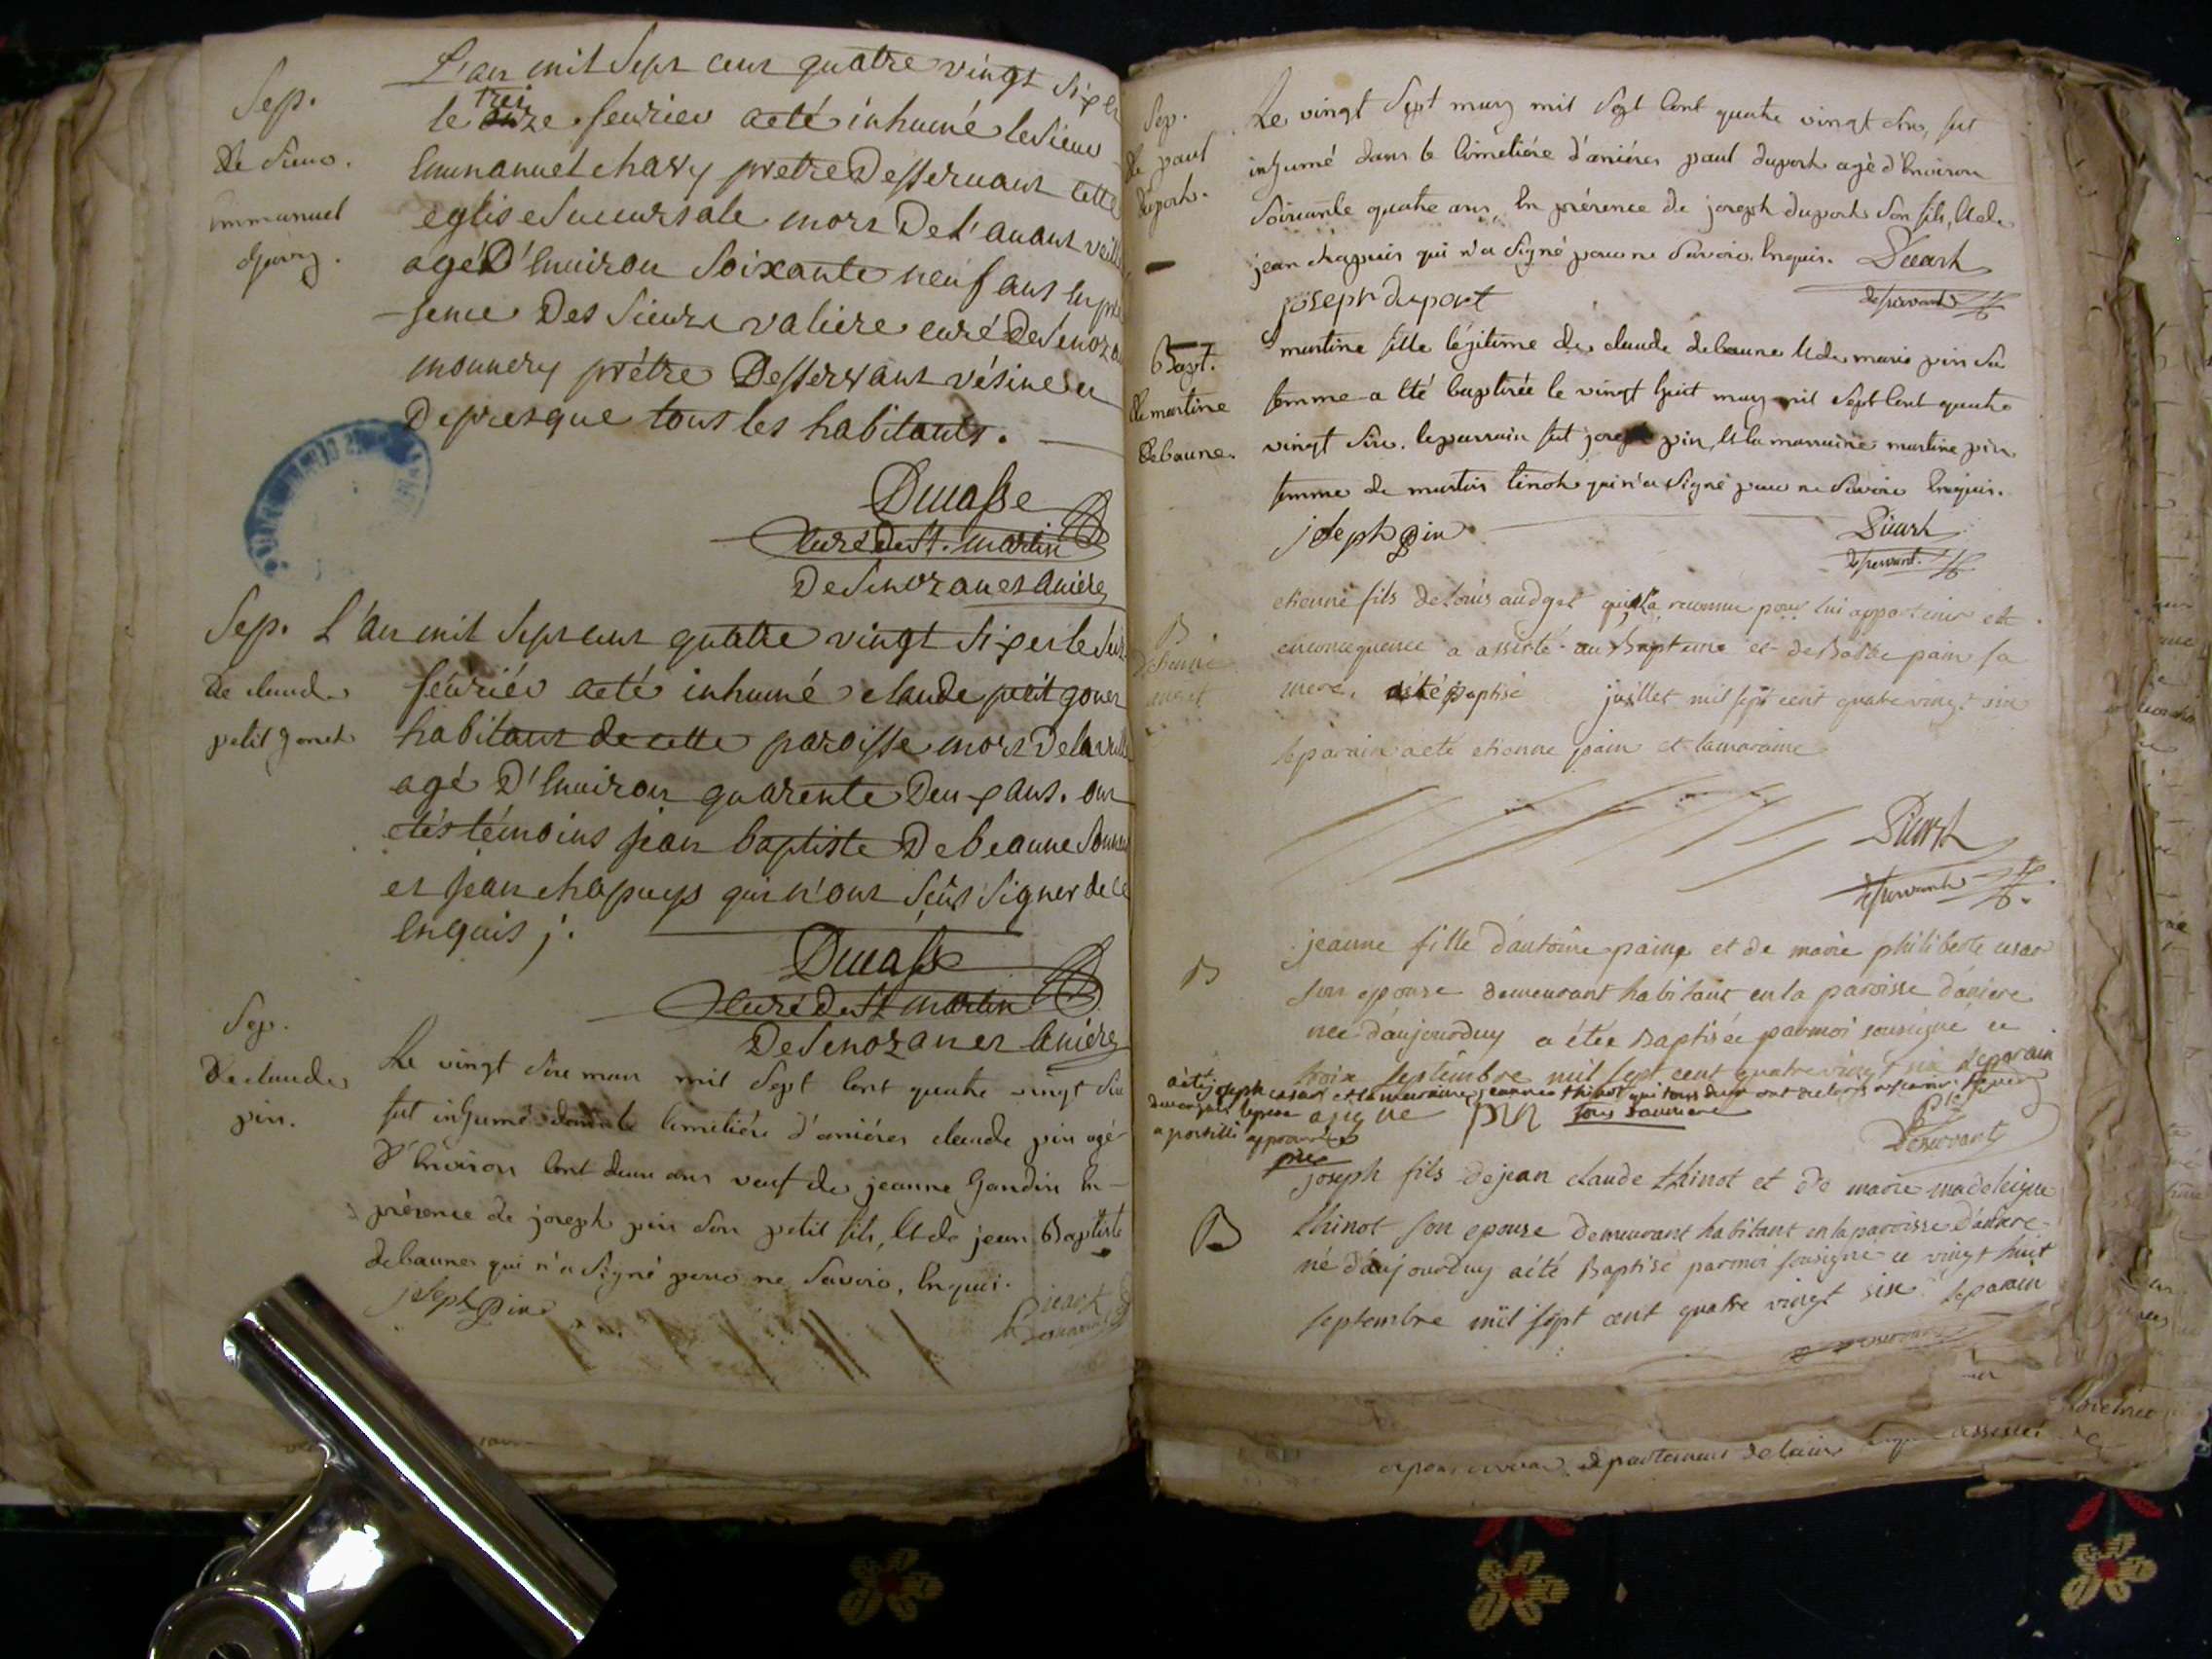 Sep.
de Sieur
Emmanuel
chary.
L'an mil Sept cent quatre vingt Six et
le treize fevrier a eté inhumé le Sieur
Emmanuel chary prétre Desservant cette
eglise Succursale mort De l'avant veille
agé D'Environ Soixante neuf ans En pré
-sence Des Sieurs valiere curé De Senozan
monnery prétre Desservant vésines et
De presque tous les habitants.
Ducasse
Curé de St. Martin
De Senozan et Aniéres
Sep.
de claude
petit gonet
L'an mil Sept cent quatre vingt Six et le
févriér a eté inhumé claude petit gonet
habitant de cette paroisse mort De la veille
agé D'Environ quarente Deux ans. ont
etés témoins jean baptiste Debeaune
et jean chapuys qui n'ont Sçus Signer de ce
Enquis j.
Ducasse
Curé de St Martin
De Senozan et Aniéres
Sep.
De claude
pin.
Le vingt Six mars mil Sept Cent quatre vingt Six
fut inhumé dans le Cimetiére d'aniéres claude pin agé
D'Environ Cent deux ans veuf de jeanne Gandin En
présence de joseph pin Son petit fils, Et de jean Baptiste
debaune qui n'a Signé pour ne Savoir, Enquis.
joseph pin
Picart
Desservant
Sep.
de paul
duport.
Le vingt Sept mars mil Sept Cent quatre vingt Six, fut
inhumé dans le Cimetiére d'aniéres paul duport agé d'Environ
Soixante quatre ans, En présence de joseph duport Son fils, Et de
jean chapuis qui n'a Signé pour ne Savoir, Enquis. Picart
joseph duport
desservant
Bapt.
de martine
debaune.
martine fille légitime de claude debaune Et de marie pin Sa
femme a Eté baptisée le vingt huit mars mil Sept Cent quatre
vingt Six. le parrain fut joseph pin, Et la marraine martine pin
femme de martin tinot qui n'a Signé pour ne Savoir Enquis.
joseph pin
Picart
desservant.
B
etienne fils de Louis audget qui l'a reconnu pour lui appartenir et
en consequence a assisté au Bapteme et de pain sa
mere, a été Baptisé juillet mil sept cent quatre vingt six
le parain a eté etienne pain et la maraine
Picart
desservant
B
jeanne fille d'antoine paing et de marie philiberte cesar
son epouse demeurant habitant en la paroisse d'aniere
nee d'aujourduy a étée Baptisée par moi sousigné ce
troix septembre mil sept cent quatre vingt six le parain
a été joseph cesar et la maraine jeanne thinot qui tous deux ont
Desservant
B
joseph fils de jean claude thinot et de marie madeleigne
thinot son epouse demeurant habitant en la paroisse d'aniere
né d'aujourduy a été Baptisé par moi sousigné ce vingt huit
septembre mil sept cent quatre vingt six le parain
departement de